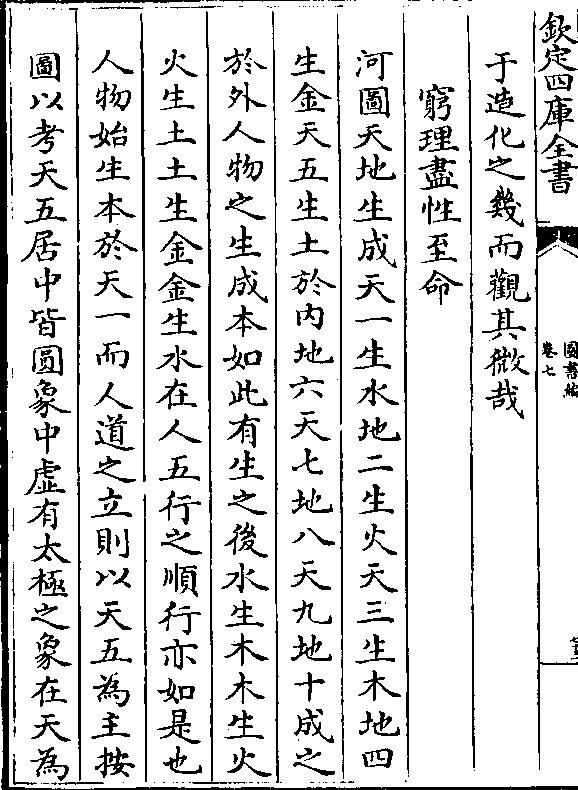 欽定四庫全書
圖書編
卷七
于造化之幾而觀其微哉
窮理盡性至命
河圖天地生成天一生水地二生火天三生木地四
生金天五生土於内地六天七地八天九地十成之
於外人物之生成本如此有生之後水生木木生火
火生土土生金金生水在人五行之順行亦如是也
人物始生本於天一而人道之立則以天五為主按
圖以考天五居中皆圓象中虛有太極之象在天為